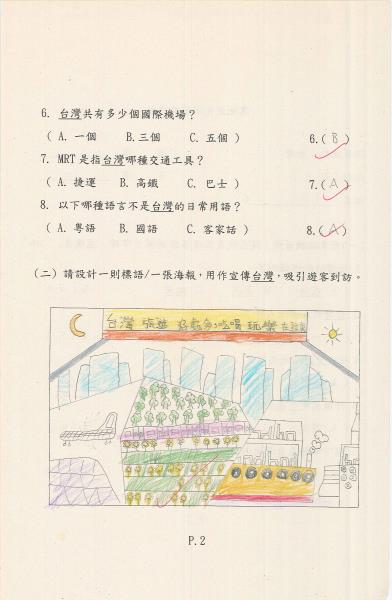 6. 台灣共有多少個國際機場？
( A. 一個 B.三個 C. 五個 ) 6.( B )
7. MRT是指台灣哪種交通工具？
( A. 捷運 B. 高鐵 C. 巴士 ) 7.( A )
8. 以下哪種語言不是台灣的日常用語？
( A. 粵語 B. 國語 C. 客家話 ) 8.( A )
(二) 請設計一則標語/一張海報，用作宣傳台灣，吸引遊客到訪。
台灣 好處多 吃喝玩樂
P.2